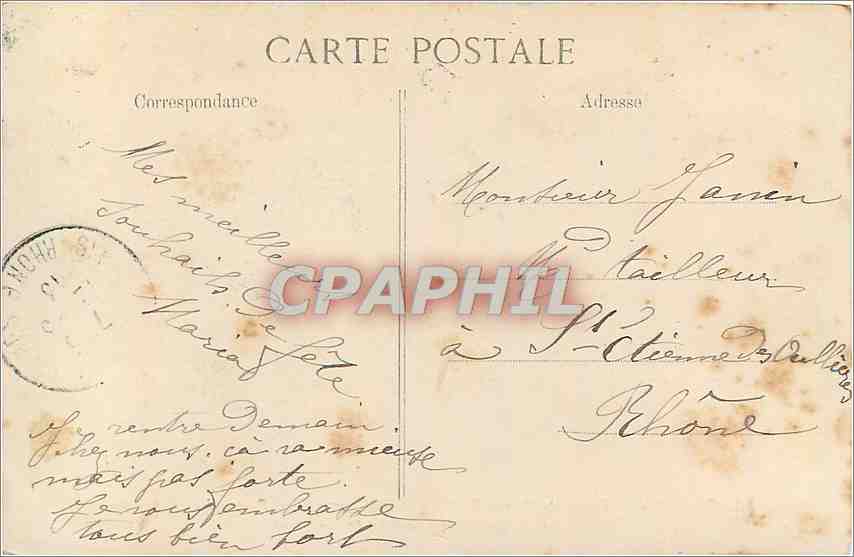 CARTE POSTALE
Correspondance
Adresse
Mes meilleurs
Souhaits De fête
Maria
Je rentre Demain
Chez nous. ça va mieuse
mais pas forte.
Je vous embrasse
tous bien fort
Monsieur Janin
Md tailleur
à St Etienne des Oullières
Rhône
RHONE
13
CPAPHIL